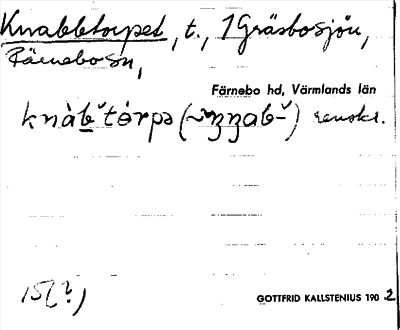 Knabbtorpet, t., 1 Gräsbosjön,
Färnebo sn,
Färnebo hd, Värmlands län
renskr.
15(?)
GOTTFRID KALLSTENIUS 1902